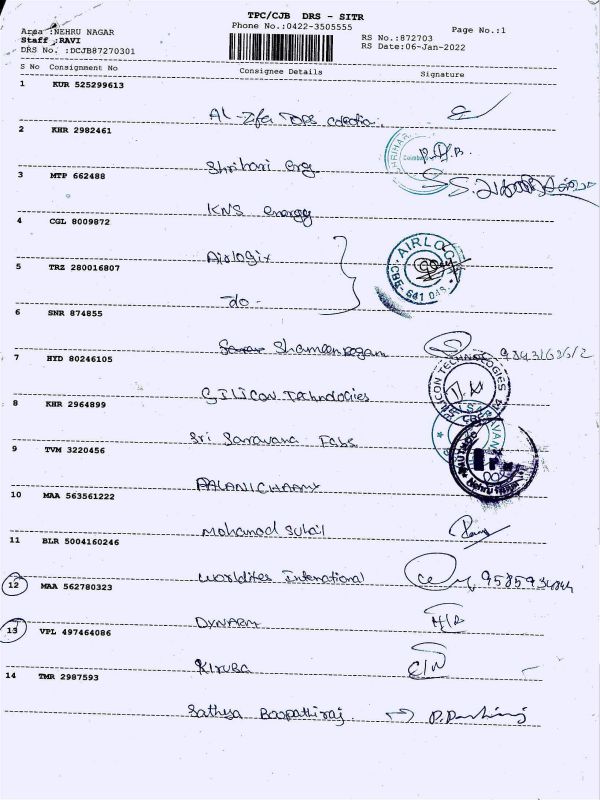 TPC/CJB DRS - SITR
Area :NEHRU NAGAR Phone No.:0422-3505555 Page No.:1
Staff :RAVI RS No.:872703
DRS No. :DCJB87270301 RS Date:06-Jan-2022
S No Consignment No Consignee Details Signature
1 KUR 525299613
Al-Zifa Tops
2 KHR 2982461
Shrihari Eng
3 MTP 662488
KNS energy
4 CGL 8009872
Airlogix AIRLOG
5 TRZ 280016807
-do- CBE-641 048
6 SNR 874855
7 HYD 80246105
SILICON Technologies
8 KHR 2964899
Sri Saravana Fabs
9 TVM 3220456
PALANICHAAMY
10 MAA 563561222
Mohamad Suhail
11 BLR 5004160246
Worldites International
12 MAA 562780323
13 VPL 497464086
KIRUBA
14 TMR 2987593
Sathya